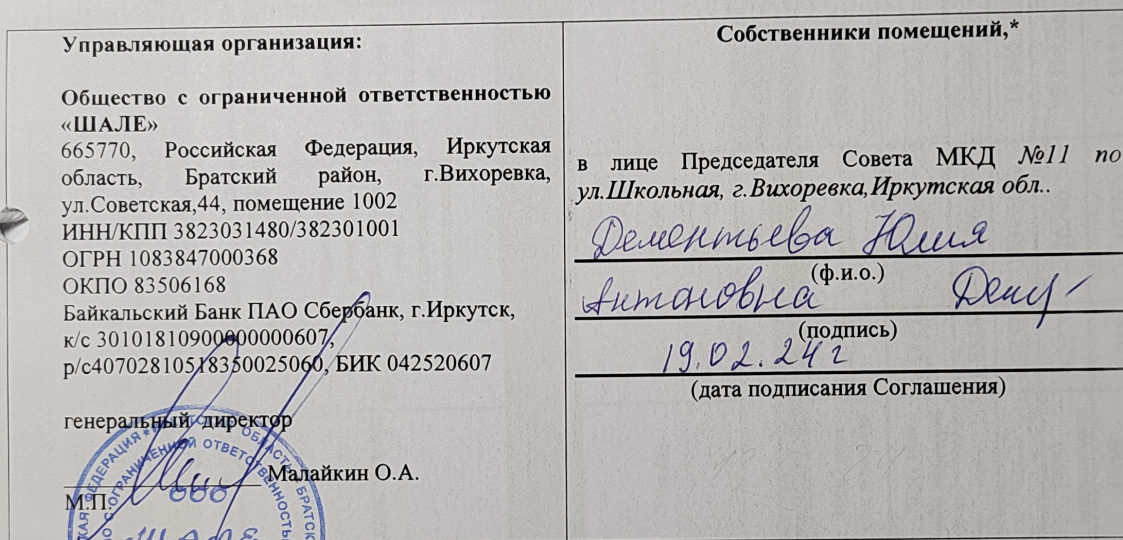 Управляющая организация:
Общество с ограниченной ответственностью
«ШАЛЕ»
665770, Российская Федерация, Иркутская
область, Братский район, г.Вихоревка,
ул.Советская,44, помещение 1002
ИНН/КПП 3823031480/382301001
ОГРН 1083847000368
ОКПО 83506168
Байкальский Банк ПАО Сбербанк, г.Иркутск,
к/с 30101810900000000607,
р/с40702810518350025060, БИК 042520607
генеральный директор
Малайкин О.А.
М.П.
ФЕДЕРАЦИЯ ★ ОБЛАСТЬ БРАТСК
С ОГРАНИЧЕННОЙ ОТВЕТСТВЕННОСТЬЮ
ООО
Собственники помещений,*
в лице Председателя Совета МКД №11 по
ул.Школьная, г.Вихоревка,Иркутская обл..
Дементьева Юлия
(ф.и.о.)
Антоновна
(подпись)
19.02.24г
(дата подписания Соглашения)